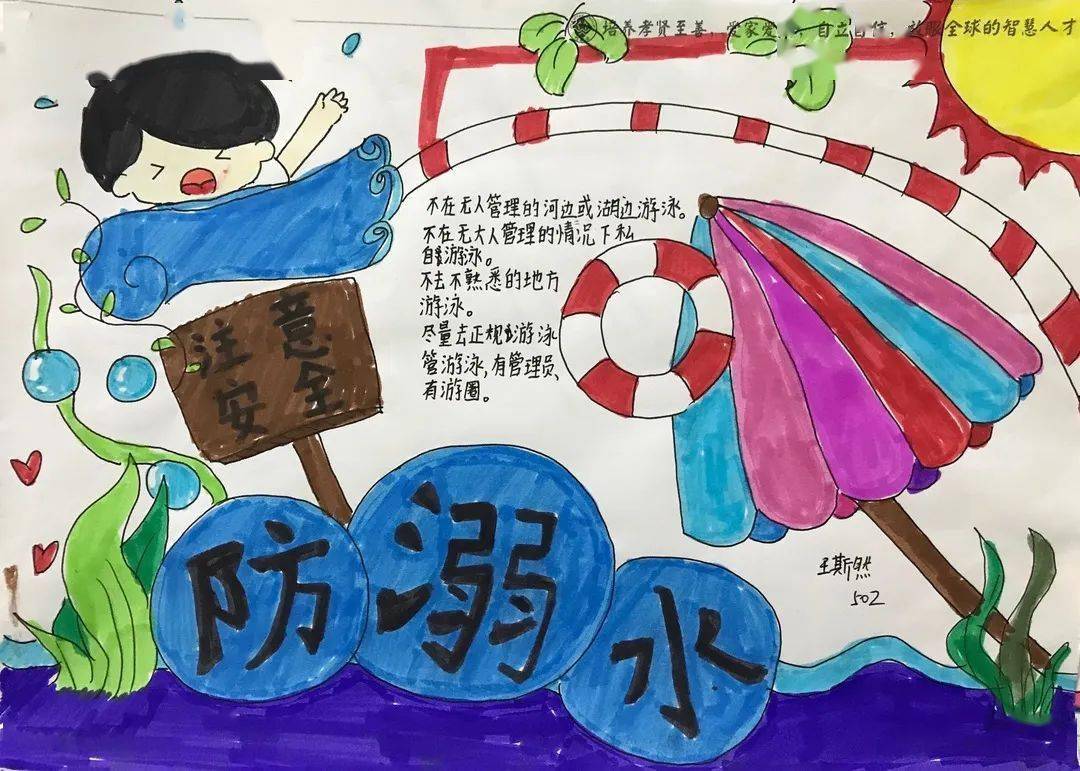 培养孝贤至善，爱家爱
自立自信，放眼全球的智慧人才
不在无人管理的河边或湖边游泳。
不在无大人管理的情况下私
自游泳。
不去不熟悉的地方
游泳。
尽量去正规游泳
管游泳，有管理员、
有游圈。
注意
安全
防溺水
王斯然
502